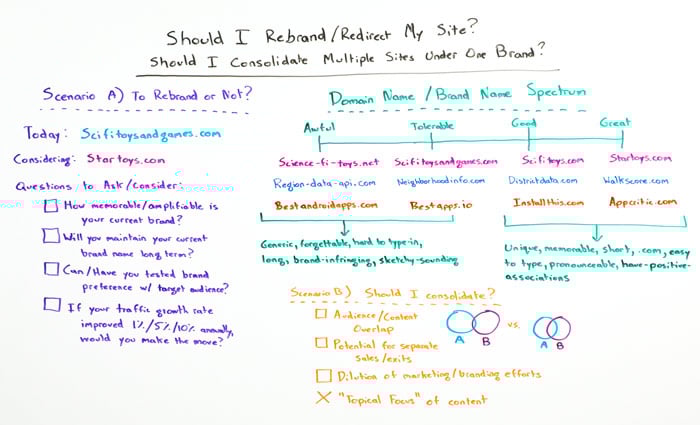 Should I Rebrand/Redirect My Site?
Should I Consolidate Multiple Sites Under One Brand?
Scenario A) To Rebrand or Not?
Today: Scifitoysandgames.com
Considering: Startoys.com
Questions to Ask/Consider:
How memorable/amplifiable is
your current brand?
Will you maintain your current
brand name long term?
Can/Have you tested brand
preference w/ target audience?
If your traffic growth rate
improved 1%/5%/10% annually,
would you make the move?
Domain Name / Brand Name Spectrum
Awful Tolerable Good Great
Science-fi-toys.net Scifitoysandgames.com Scifitoys.com Startoys.com
Region-data-api.com Neighborhoodinfo.com Districtdata.com Walkscore.com
Bestandroidapps.com Bestapps.io InstallThis.com Appcritic.com
Generic, forgettable, hard to type-in,
long, brand-infringing, sketchy-sounding
Unique, memorable, short, .com, easy
to type, pronounceable, have-positive-
associations
Scenario B) Should I consolidate?
Audience/Content
Overlap
A B vs. A B
Potential for separate
sales/exits
Dilution of marketing/branding efforts
"Topical Focus" of content